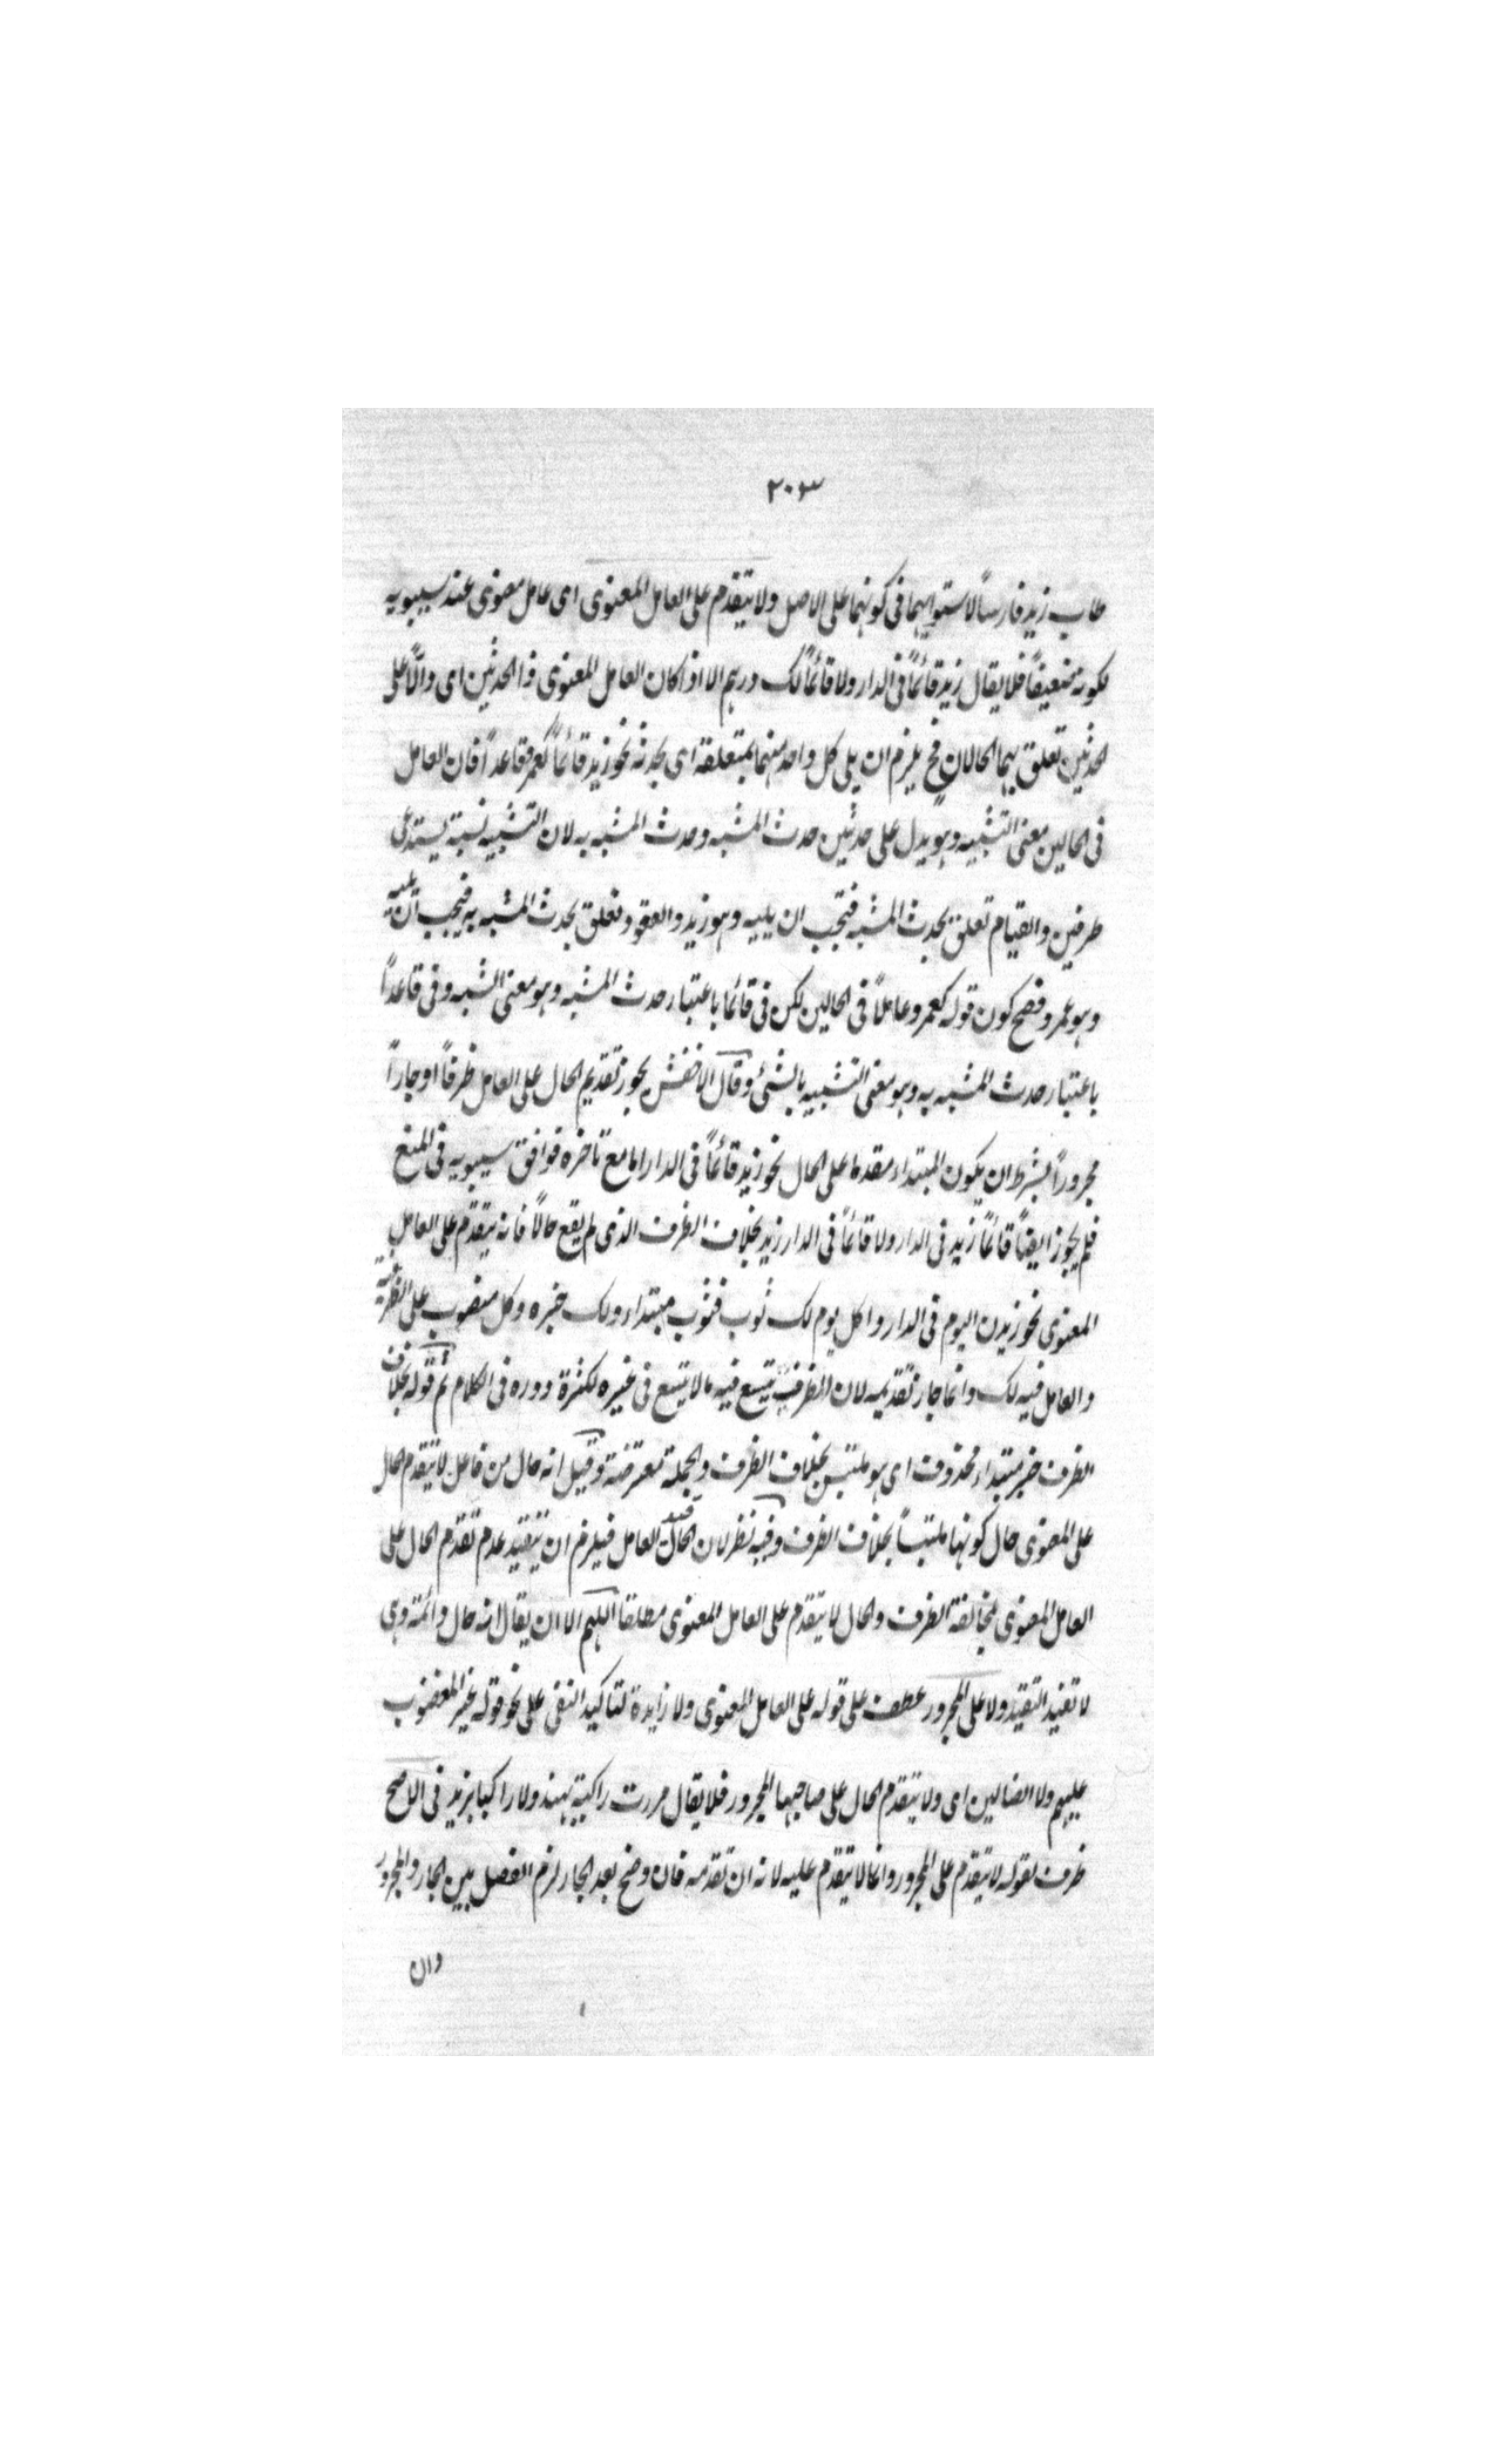 ٢٠٣
طاب زيد فارسًا لاستوائهما فى كونهما على الاصل ولا يتقدم على العامل المعنوى اى عامل معنوى عند سيبويه
لكونه ضعيفًا فلا يقال زيد قائمًا فى الدار ولا قائمًا لك درهم الا اذا كان العامل المعنوى ذا الحدثين اى دالًا على
الحدثين تعلق بهما الحالان فح يلزم ان يلى كل واحد منهما بمتعلقه اى بحدثه نحو زيد قائمًا كعمرو قاعدًا فان العامل
فى الحالين معنى التشبيه وهو يدل على حدثين حدث المشبه وحدث المشبه به لان التشبيه نسبة يستدعى
طرفين والقيام تعلق بحدث المشبه فتجب ان يليه وهو زيد والقعود تعلق بحدث المشبه به فيجب ان يليه
وهو عمرو فصح كون قوله كعمرو عاملًا فى الحالين لكن فى قائما باعتبار حدث المشبه وهو معنى الشبه وفى قاعدًا
باعتبار حدث المشبه به وهو معنى التشبيه بالشئ وقال الاخفش يجوز تقديم الحال على العامل ظرفًا او جارًا
مجرورًا بشرط ان يكون المبتداء مقدما على الحال نحو زيد قائمًا فى الدار اما مع تاخره فوافق سيبويه فى المنع
فلم يجوز ايضًا قائمًا زيد فى الدار ولا قائمًا فى الدار زيد بخلاف الظرف الذى لم يقع حالًا فانه يتقدم على العامل
المعنوى نحو زيدن اليوم فى الدار واكل يوم لك ثوب فثوب مبتداء ولك خبره وكل منصوب على الظرفية
والعامل فيه لك وانما جاز تقديمه لان الظرف يتسع فيه مالا يتسع فى غيره لكثرة دوره فى الكلام ثم قوله بخلاف
الظرف خبر مبتداء محذوف اى هو ملتبس بخلاف الظرف والجملة معترضة وقيل انه حال من فاعل لا يتقدم الحال
على المعنوى حال كونها ملتبسًا بخلاف الظرف وفيه نظر لان الحال قيد العامل فيلزم ان يتقيد عدم تقدم الحال على
العامل المعنوى بمخالفة الظرف والحال لا يتقدم على العامل المعنوى مطلقا اللهم الا ان يقال انه حال دائمة وهى
لا تفيد التقيد ولا على المجرور عطف على قوله على العامل المعنوى ولا زايدة لتاكيد النفى على نحو قوله غير المغضوب
عليهم ولا الضالين اى ولا يتقدم الحال على صاحبها المجرور فلا يقال مررت راكبة بهند ولا راكبا بزيد فى الاصح
ظرف لقوله لا يتقدم على المجرور وانما لا يتقدم عليه لانه ان تقدمه فان وضع بعد الجار لزم الفصل بين الجار والمجرور
وان